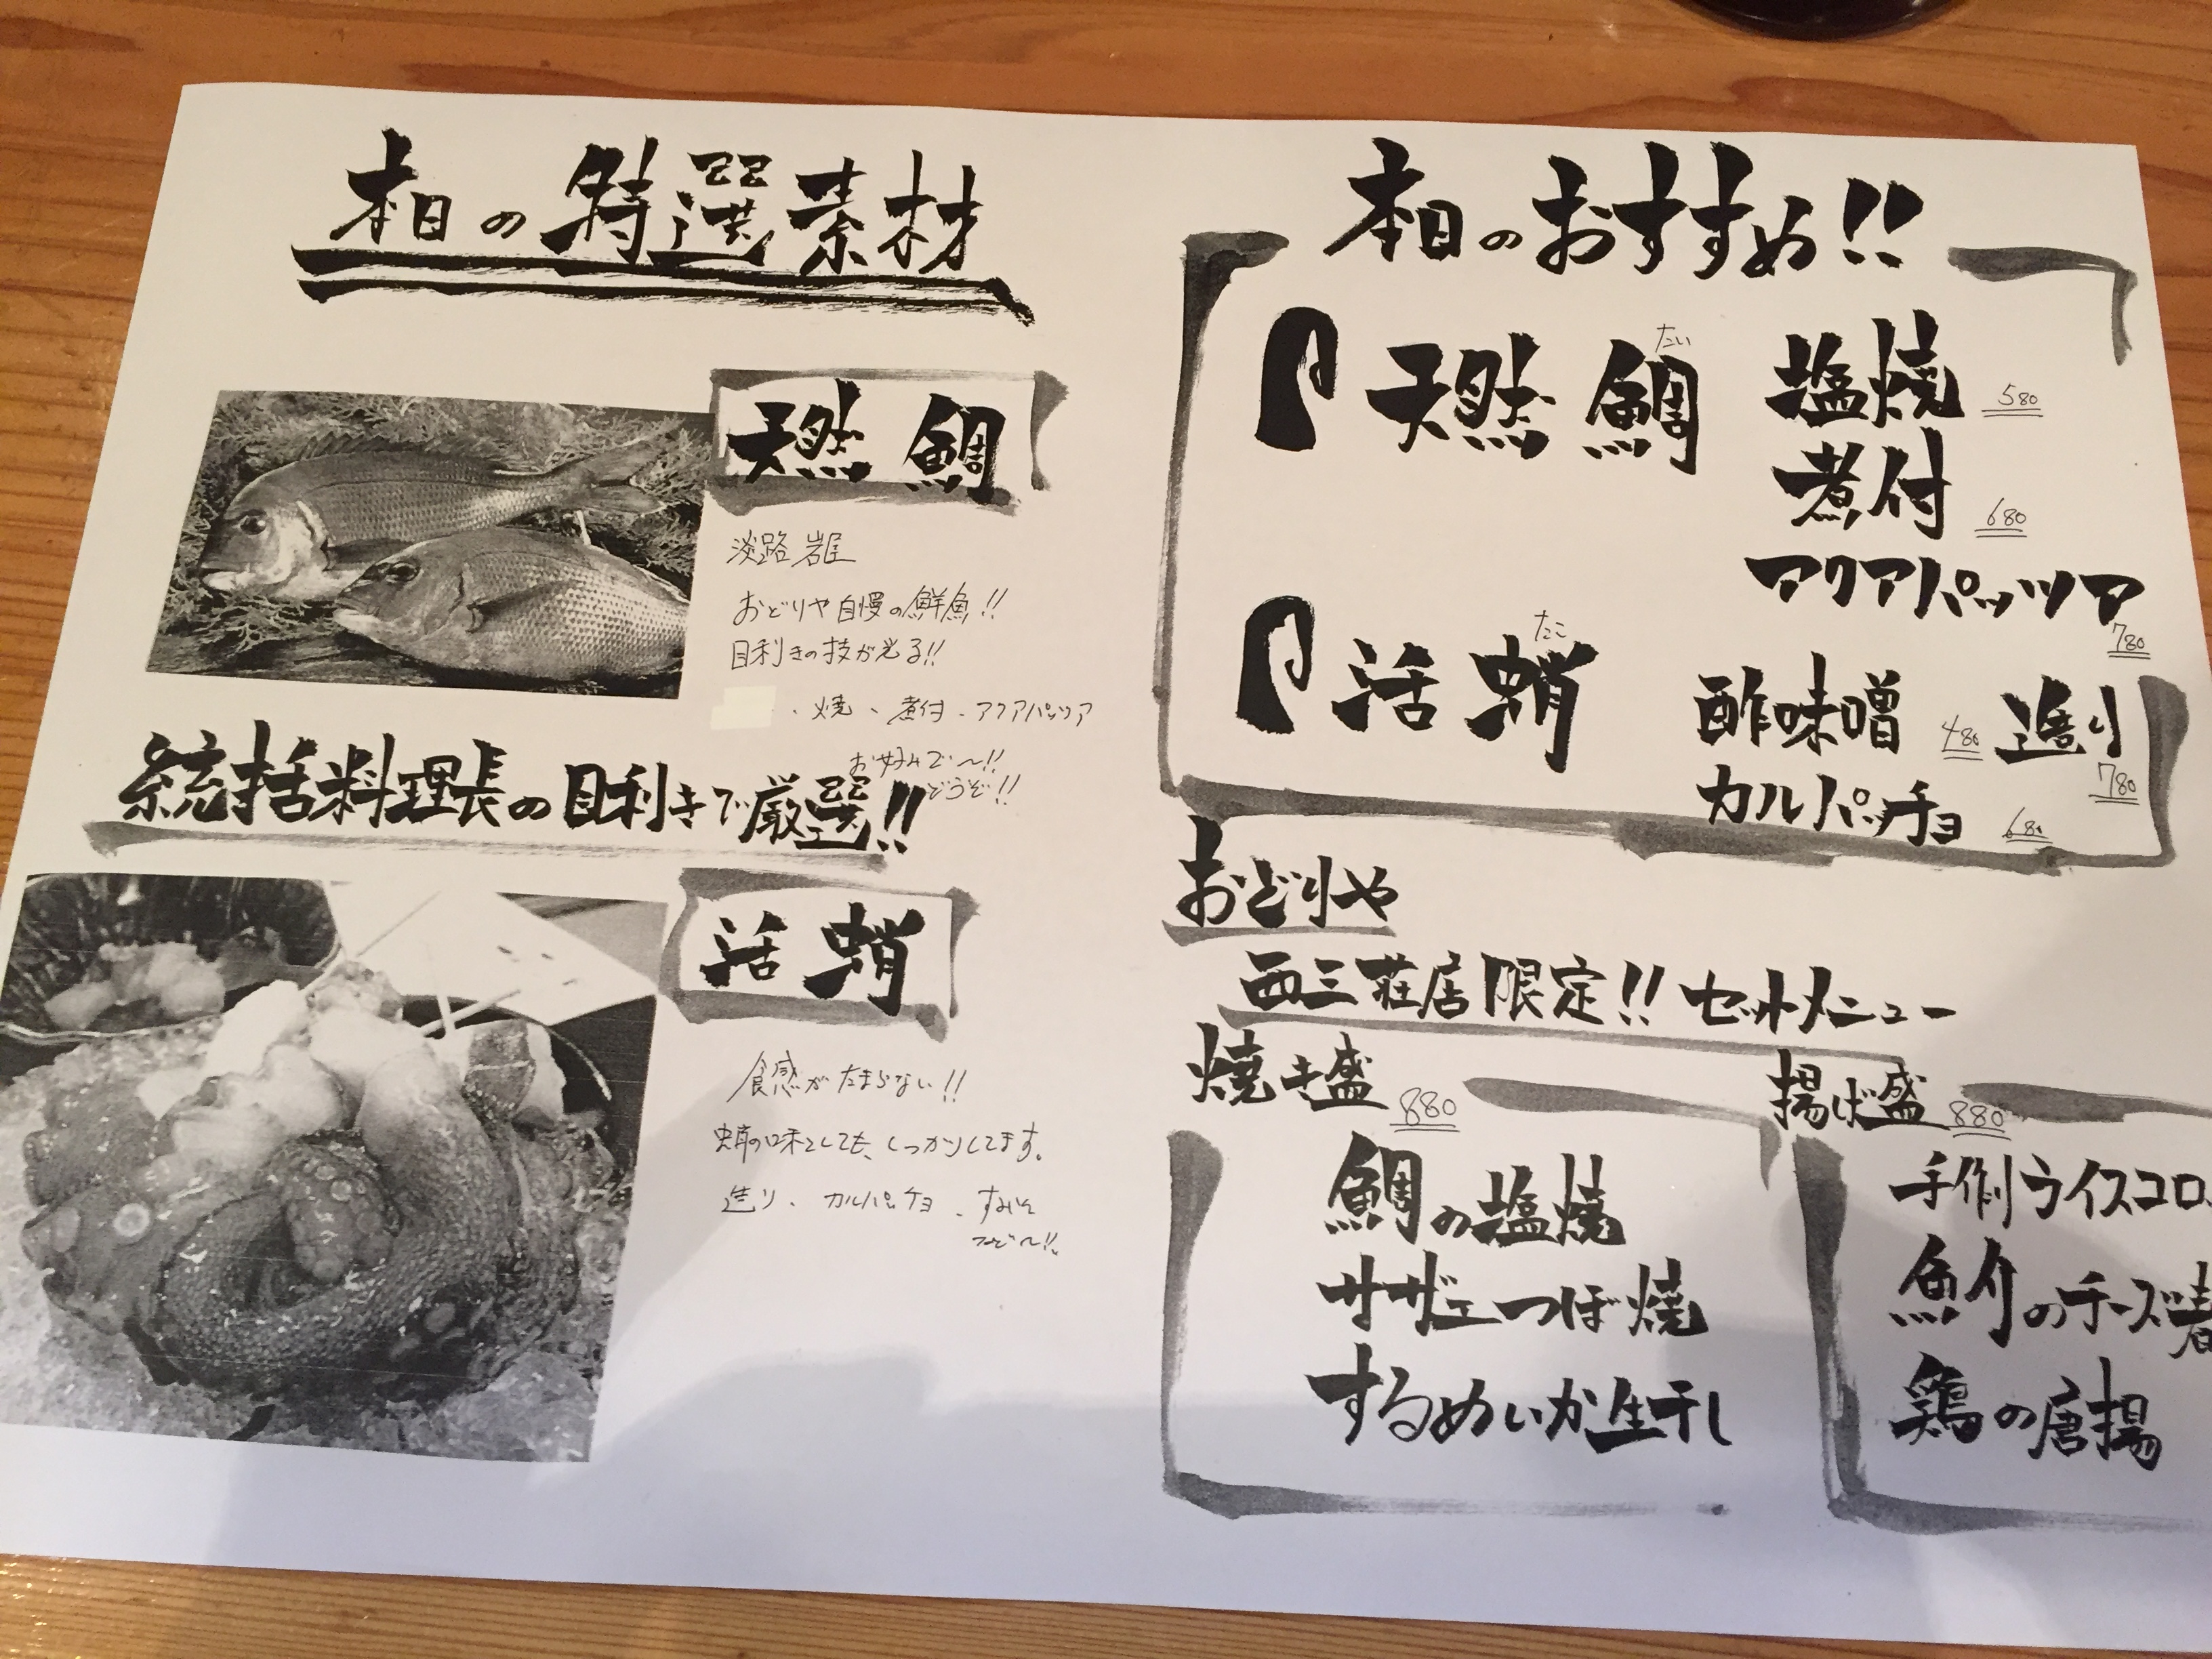 本日の特選素材
天然 鯛
淡路 岩屋
おどりや自慢の鮮魚!!
目利きの技が光る!!
、焼、煮付、アクアパッツア
お好みで〜!!
どうぞ!!
統括料理長の目利きで厳選!!
活 蛸
食感がたまらない!!
蛸の味としても、しっかりしてます。
造り、カルパッチョ、すみそ
などで〜!!
本日のおすすめ!!
天然 鯛 塩焼 580
たい
煮付 680
アクアパッツア
780
たこ
活 蛸 酢味噌 480 造り
780
カルパッチョ 680
おどりや
西三荘店限定!! セットメニュー
焼き盛 880
鯛の塩焼
サザエつぼ焼
するめいか生干し
揚げ盛 880
手作りライスコロ
魚介のチーズ春
鶏の唐揚